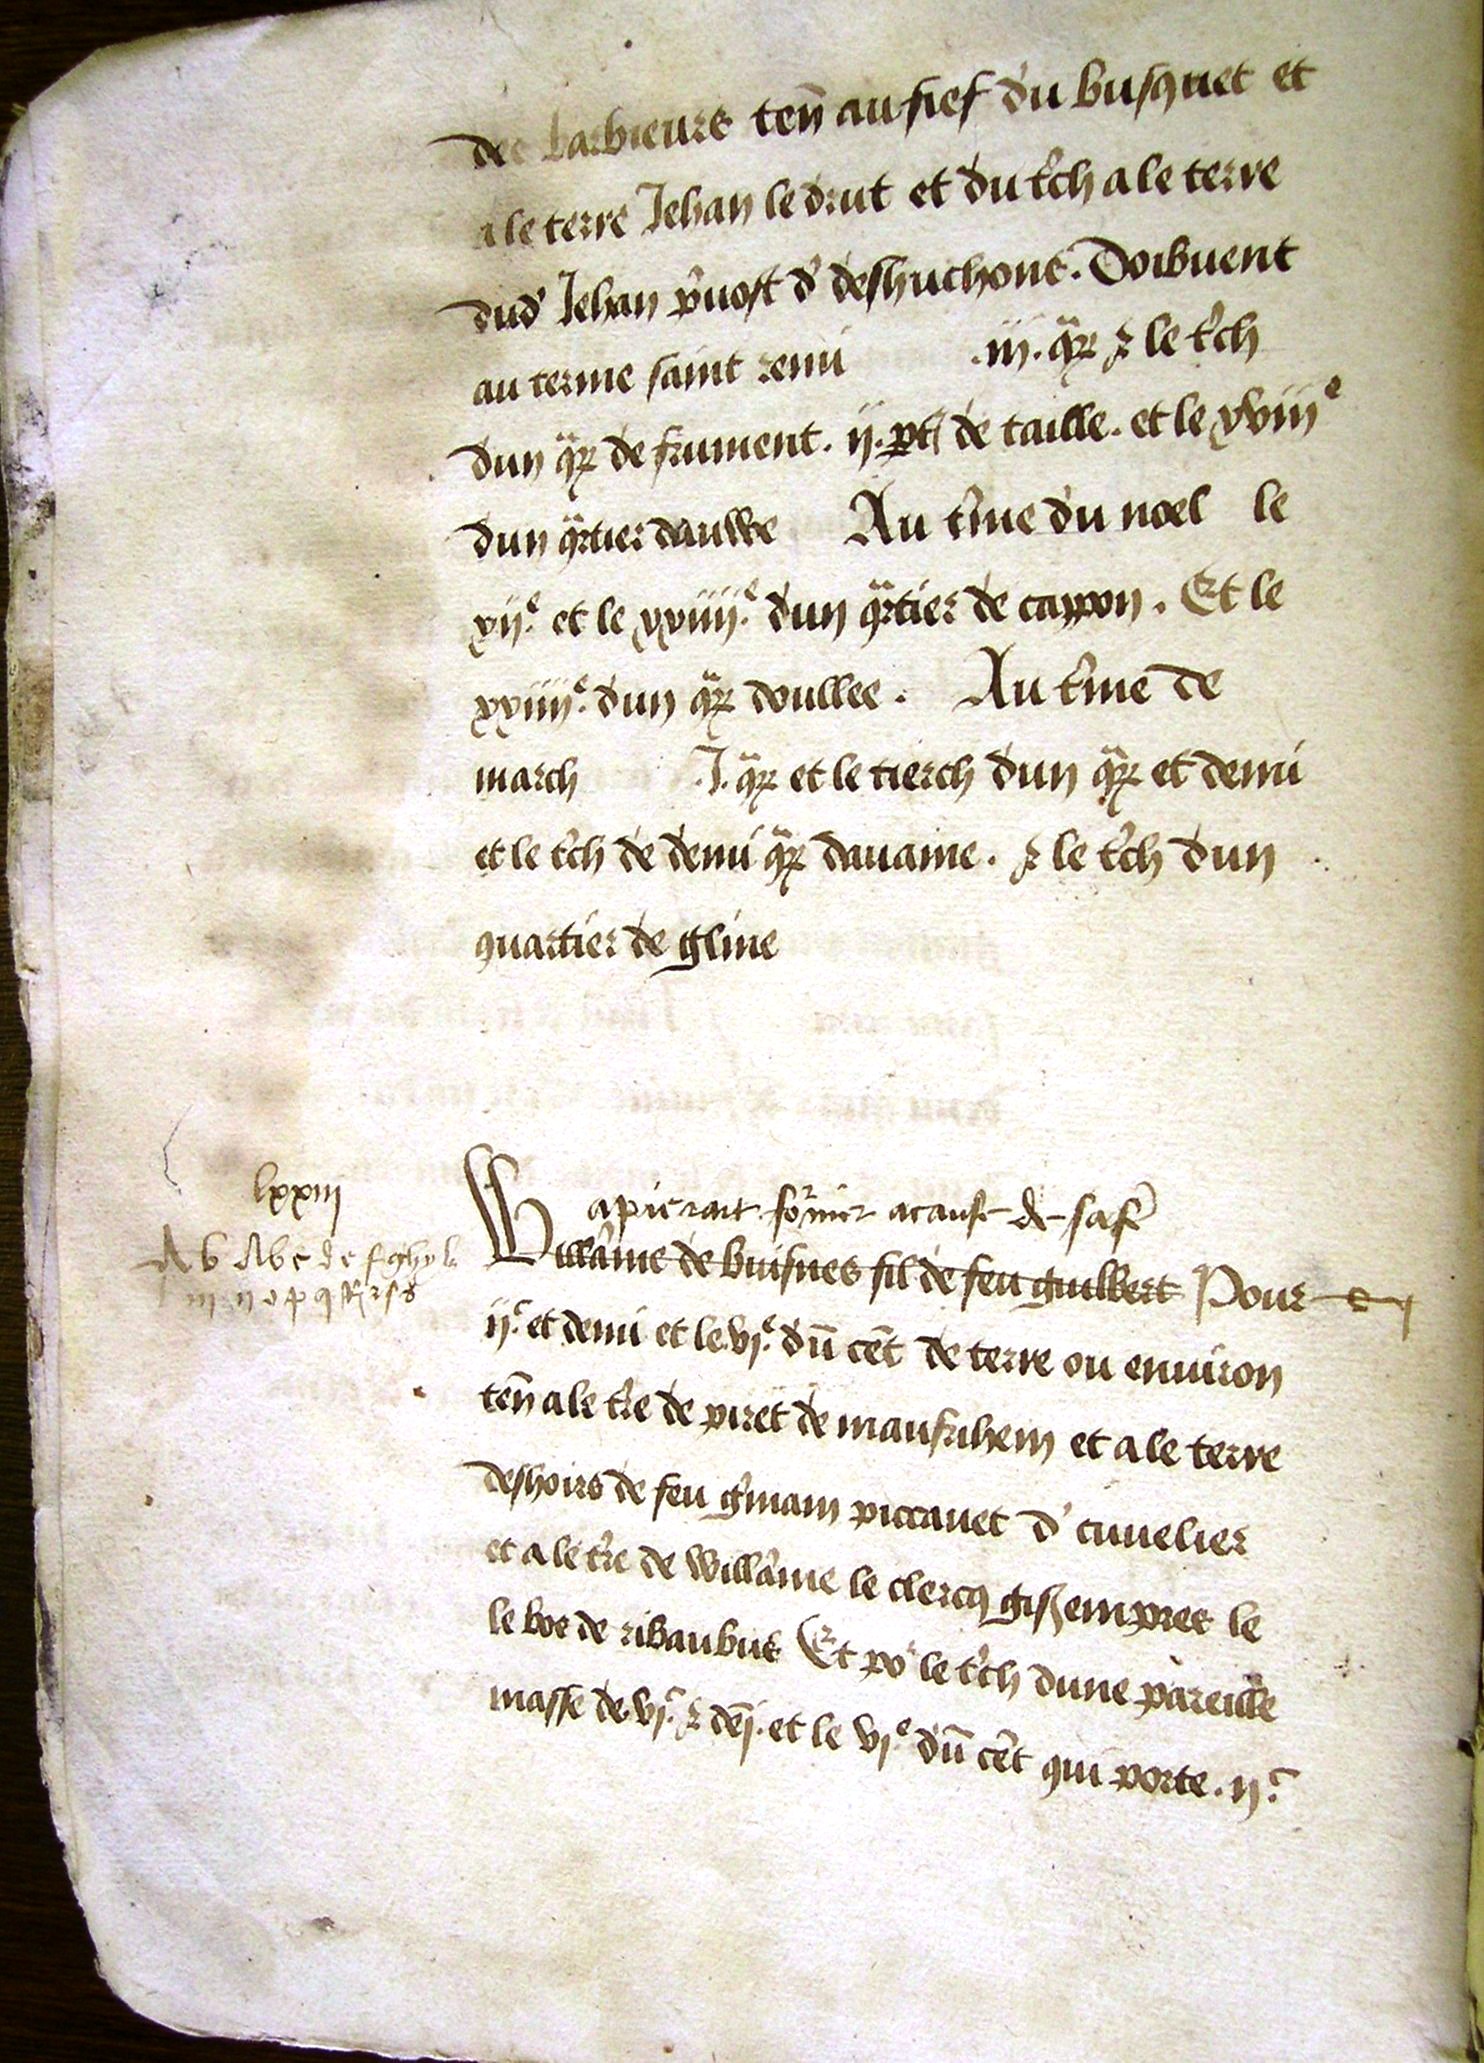 des barbieurs ten̄ au fief du busquet et
a le terre Jehan le drut et du t'ch a le terre
dud' Jehan p'uost d' deshuchons. Doibuent
au terme saint remi .iii. q̃rz ⁊ le t'ch
dun q̃rz de frument. ii. de taille. et le xviiiᵉ
dun q̃rtier dauwe Au t'me du noel le
xiiᵉ. et le xxiiiiᵉ. dun q̃rtier de cappon. Et le
xxiiiiᵉ. dun q̃rz doullee. Au t'me de
march .J. q̃rz et le tierch dun q̃rz et demi
et le t'ch de demi q̃rz dauaine. ⁊ le t'ch dun
quartier de gline
lxxiii
A b Abc de f g h y k
m n o p q R r s s
a cause de sa fe'
Willa'me de buisnes fil de feu guilbert Pour
iiᶜ. et demi et le vjᵉ. dū cēt de terre ou enuiron
ten̄ a le t're de piret de manfrihem et a le terre
deshoirs de feu g'main piccauet d' cuuelier
et a le t're de Willa'me le clercq gis empres le
le bos de ribaubus Et poʳ le t'ch dune pareille
masse de vjᶜ. ⁊ dēj. et le vjᵉ dū cēt qui porte. iiᶜ.